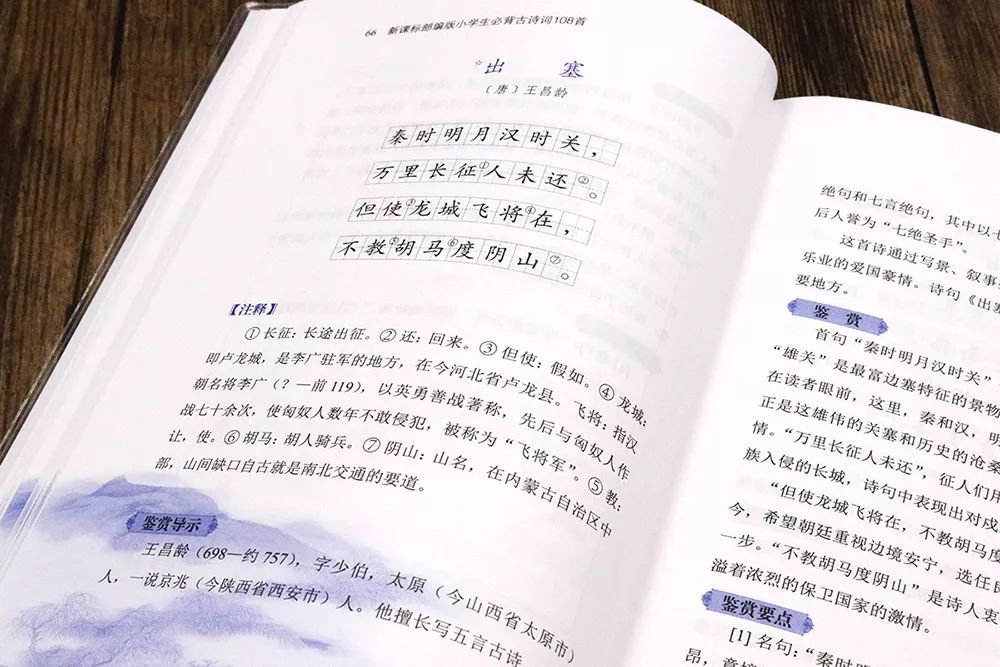 66 新课标部编版小学生必背古诗词108首
☆出 塞
〔唐〕王昌龄
秦时明月汉时关，
万里长征①人未还②。
但使③龙城飞将④在，
不教⑤胡马⑥度阴山⑦。
【注释】
①长征：长途出征。②还：回来。③但使：假如。④龙城：
即卢龙城，是李广驻军的地方，在今河北省卢龙县。飞将：指汉
朝名将李广（？—前119），以英勇善战著称，先后与匈奴人作
战七十余次，使匈奴人数年不敢侵犯，被称为“飞将军”。⑤教：
让，使。⑥胡马：胡人骑兵。⑦阴山：山名，在内蒙古自治区中
部，山间缺口自古就是南北交通的要道。
鉴赏导示
王昌龄（698—约757），字少伯，太原（今山西省太原市）
人，一说京兆（今陕西省西安市）人。他擅长写五言古诗
绝句和七言绝句，其中以七
后人誉为“七绝圣手”。
这首诗通过写景、叙事
乐业的爱国豪情。诗句《出塞
要地方。
鉴赏
首句“秦时明月汉时关”
“雄关”是最富边塞特征的景物
在读者眼前，这里，秦和汉，明
正是这雄伟的关塞和历史的沧桑
情。“万里长征人未还”，征人们用
族入侵的长城，诗句中表现出对戍
“但使龙城飞将在，不教胡马度
今，希望朝廷重视边境安宁，选任良
一步。“不教胡马度阴山”是诗人衷
溢着浓烈的保卫国家的激情。
鉴赏要点
[1] 名句：“秦时明
昂，意境